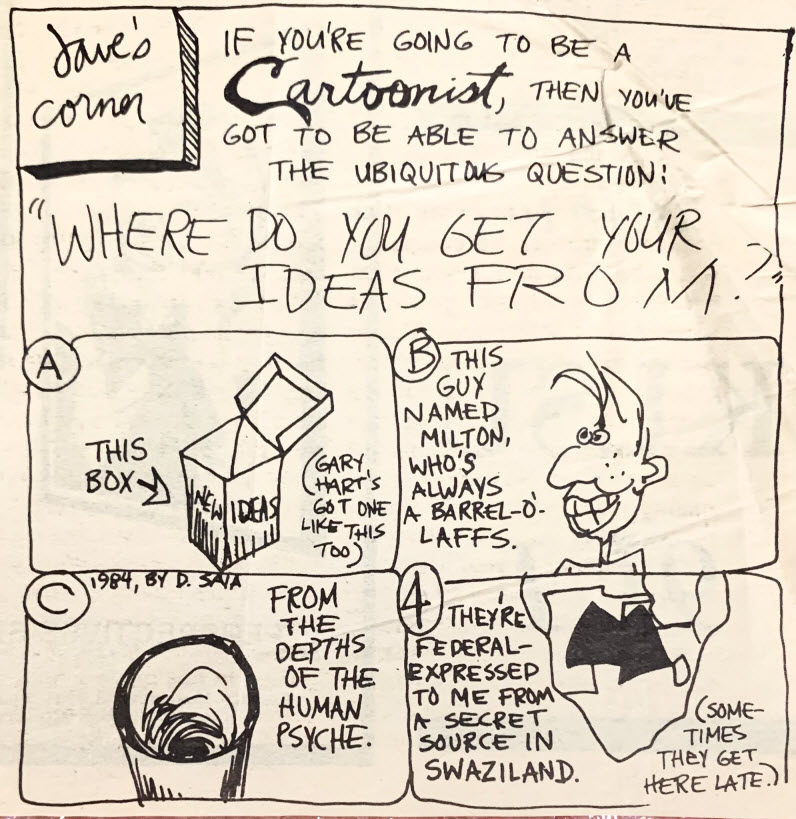 Dave's
corner
IF YOU'RE GOING TO BE A
Cartoonist, THEN YOU'VE
GOT TO BE ABLE TO ANSWER
THE UBIQUITOUS QUESTION:
"WHERE DO YOU GET YOUR
IDEAS FROM?"
A
THIS
BOX
NEW IDEAS
(GARY
HART'S
GOT ONE
LIKE THIS
TOO)
B
THIS
GUY
NAMED
MILTON,
WHO'S
ALWAYS
A BARREL-O'-
LAFFS.
C
1984, BY D. SAIA
FROM
THE
DEPTHS
OF THE
HUMAN
PSYCHE.
4
THEY'RE
FEDERAL-
EXPRESSED
TO ME FROM
A SECRET
SOURCE IN
SWAZILAND.
(SOME-
TIMES
THEY GET
HERE LATE.)